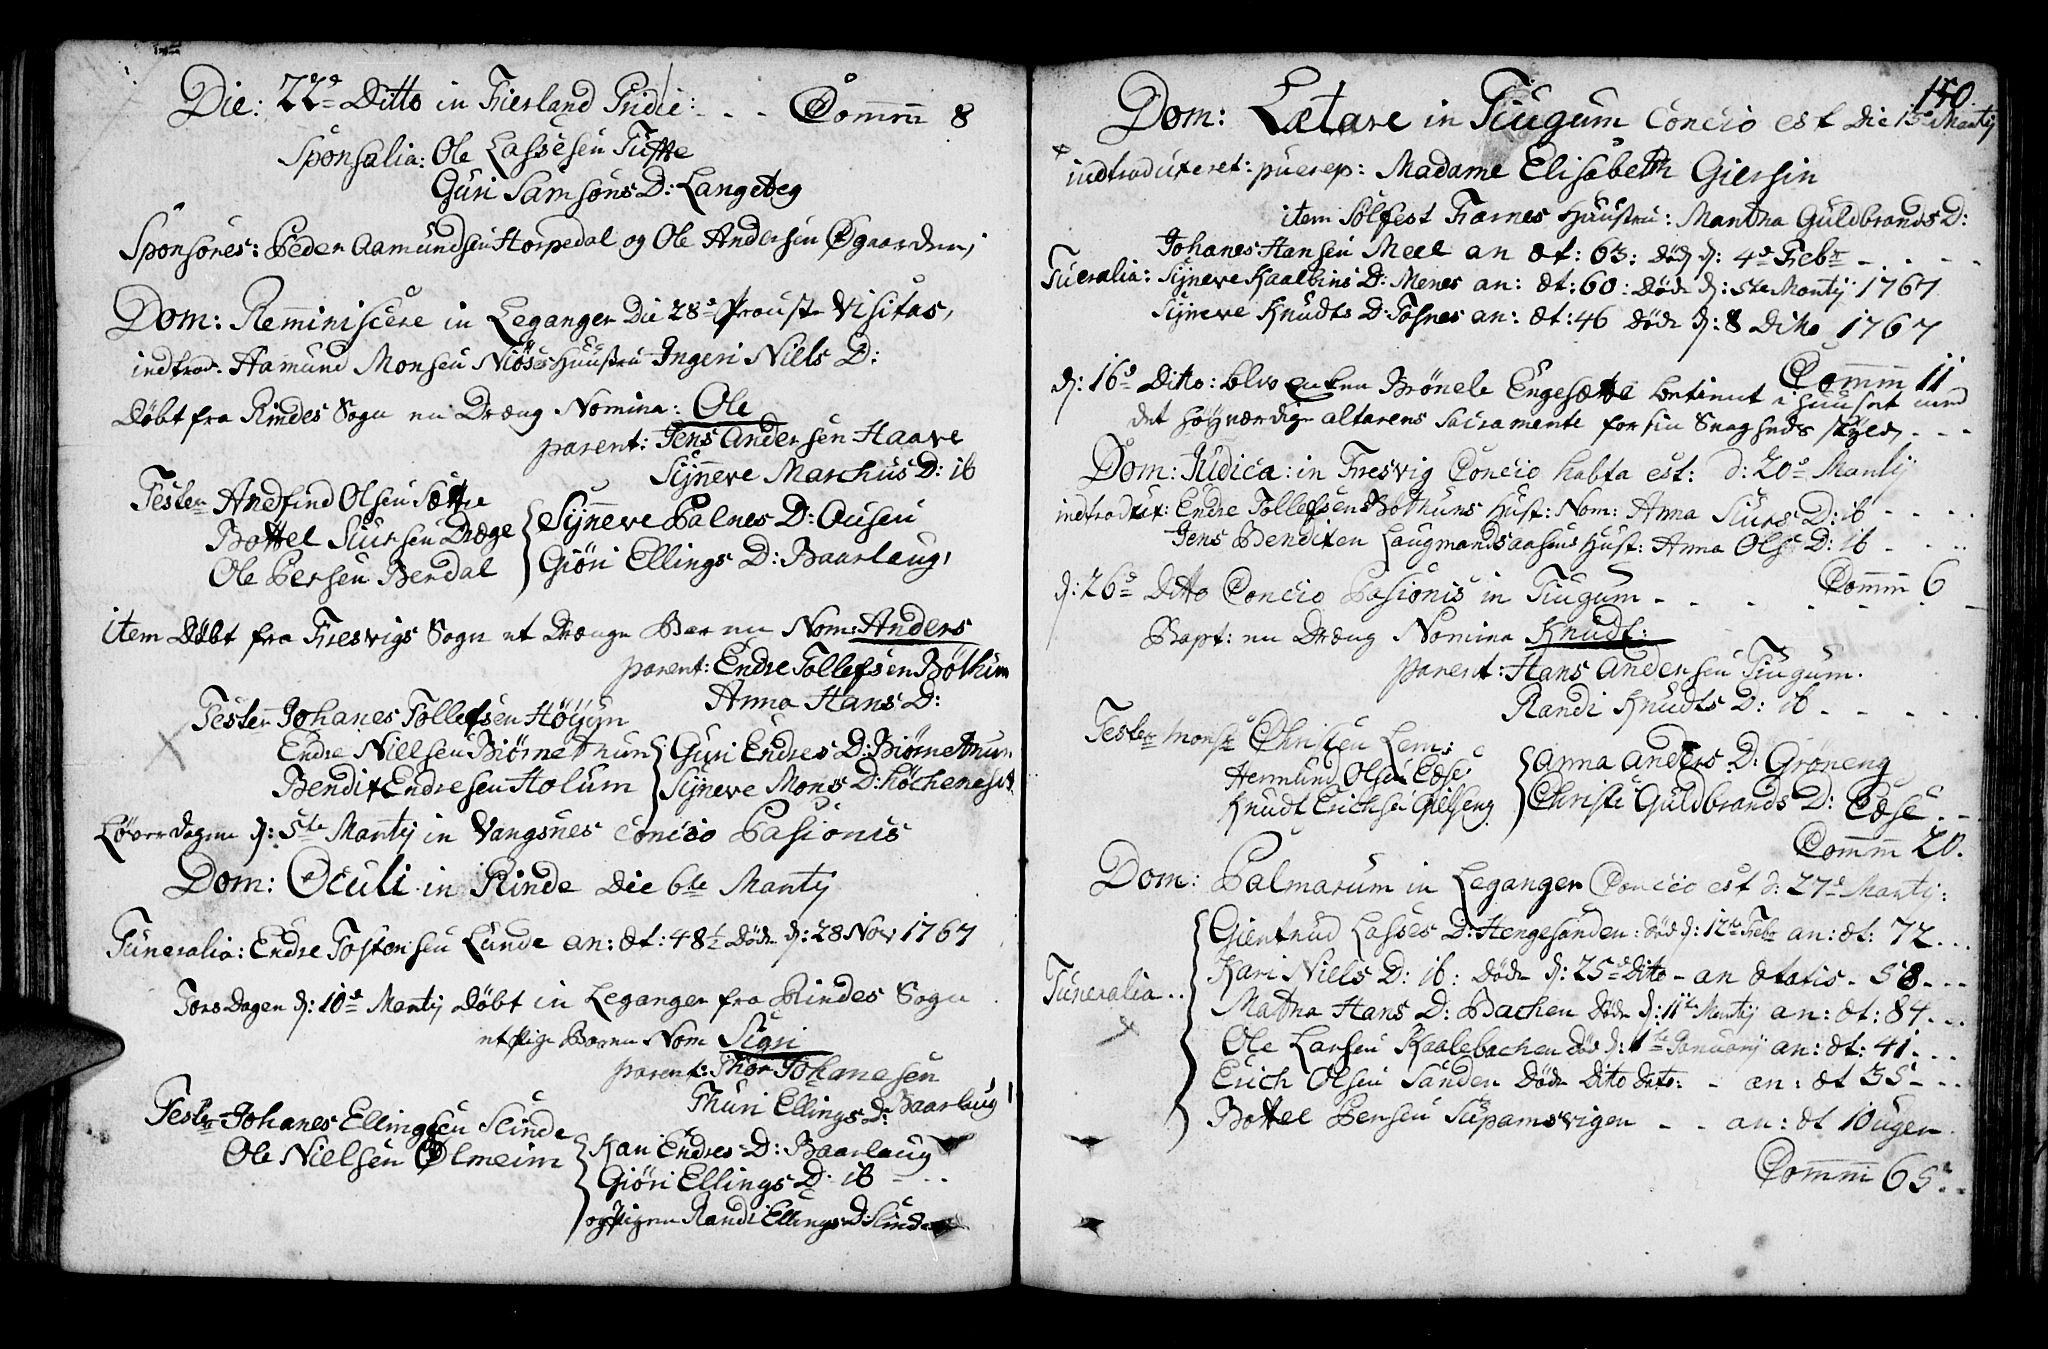 Die: 22de Ditto in Fierland Pridie: - - - Comm 8
Sponsalia: Ole Lassesen Tuffte
Guri Samsons D: Langeteg
Sponsores: Peder Aamundsen Horpedal og Ole Andersen Øgaarden,
Dom: Reminiscere in Leganger Die 28de Prouste Visitas,
indtrod. Aamund Monsen Niøs Huustru Ingeri Niels D:
Døbt fra Rindes Sogn en Dræng Nomina: Ole
parent: Jens Andersen Haave
Sijneve Marchus D: ib
Tester Andfind Olsen Sættre
Bottel Siursen Dræge
Ole Persen Berdal
Sijneve Palnes D: Ousen
Giøri Ellings D: Baarlaug,
item Døbt fra Fresvigs Sogn et Drænge Barn Nom: Anders
parent: Endre Tollefsen Bøthun
Anna Hans D:
Tester Johanes Tollefsen
Endre Nielsen Biørnethun
Bendix Endresen Holum
Guri Endres D: Biørnethun
Sijneve Mons D:
Løverdagen d: 5te Martij in Vangsnes Concio Pasionis
Dom: Oculi in Rinde Die 6te Martij
Funeralia: Endre Tostensen Lunde an: æt: 48½ Døde d: 28 Nov 1767
Torsdagen d: 10de Martij Døbt in Leganger fra Rindes Sogn
et Pige Barn Nom Sigri
parent: Thor Johanesen
Thuri Ellings D: Baarlaug
Tester Johanes Ellingsen Slinde
Ole Nielsen Ølmeim
Kari Endres D: Baarlaug
Giøri Ellings D: ib - - -
og Pigen Randi Ellings D: Slinde
150.
Dom: Lætare in Tiugum Concio est Die 13de Martij
indtroduceret: puerep: Madame Elisabeth Giersin
item Sølfest Farnes Huustru: Martha Guldbrands D:
Johanes Hansen Meel an æt: 63: død d: 4de Febr - - - -
Fueralia: Sijneve Kaalbins D: Menes an: æt: 60: Døde d: 5te Martij 1767
Sijneve Knudts D: Fosnes an: æt: 46 døde d: 8 Dito 1767
Comm 11
d: 16de Ditto: blev Brønele Engesætte betient i Huuset med
det høyværdige altarens Sacramente for sin Svagheds skyld, - - -
Dom: Judica: in Fresvig Concio habta est: d: 20de Martij
indtrodut: Endre Tollefsens Bøthuns Hust: Nom: Anna Siurs D: ib - - - -
Jens Benditen Laugmandsaasens Hust: Anna Ols D: ib - - -
Comm 6
d: 26de Ditto Concio Pasionis in Tiugum - - - - -
Bapt: en Dræng Nomina Knudt:
parent: Hans Andersen Tiugum.
Randi Knudts D: ib - - - -
Tester monsr Christen Lem:
Hermund Olsen Eese,
Knudt Erichsen Gielseng
Anna Anders D: Grøneng
Christi Guldbrands D: Eese. -
Comm 20.
Dom: Palmarum in Leganger Concio est d: 27de Martij:
Funeralia..
Giertrud Lasses D: Hengesanden: død d: 12te Febr an: æt: 72...
Kari Niels D: ib: Døde d: 25de Dito - an ætatis - 58 - - -
Martha Hans D: Bachen Døde d: 11te Martij an: æt: 84 - - -
Ole Larsen Kaalebachen død d: 1te Januarij an: æt: 41 - - -
Erich Olsen Sanden Døde Dito Dato: - an: æt 35 - - -
Bottel Persen Supamsvigen - - an: æt 10 ugen.
Comm 65. -